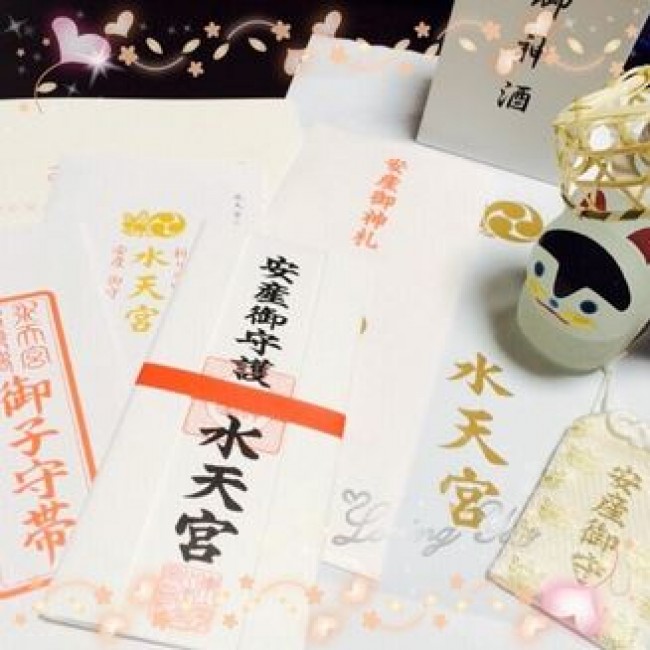 御神酒
安産御神札
水天宮
水天宮
安産御守護
水天宮
水天宮
御子守帯
安産御守
Loving